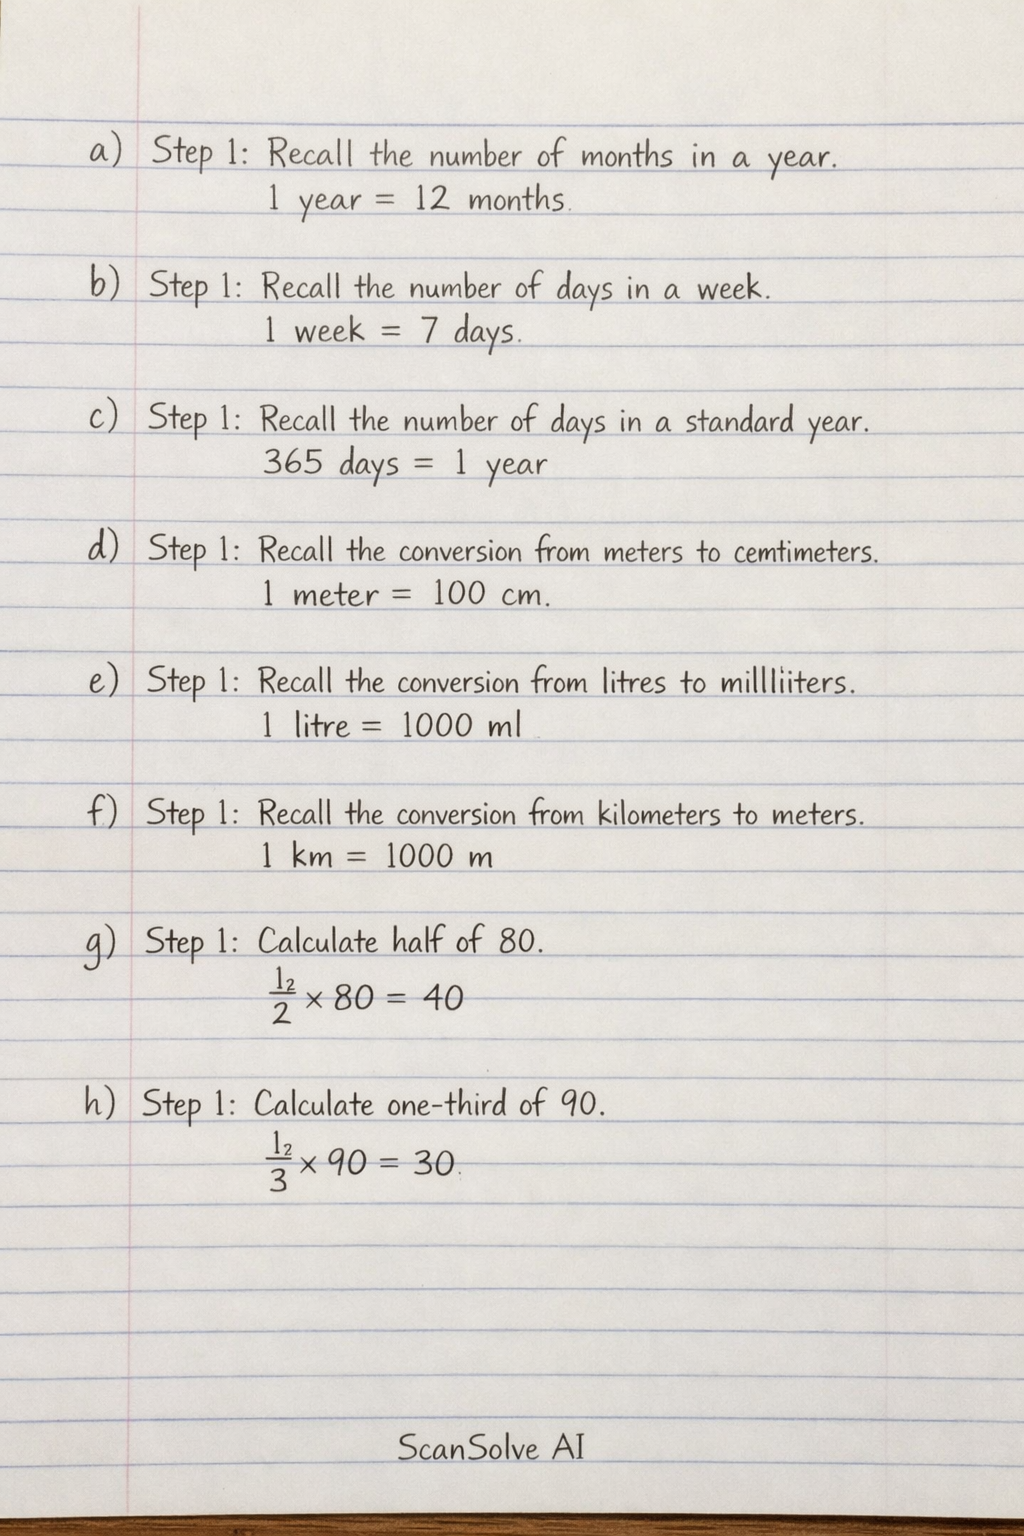 a) Step 1: Recall the number of months in a year.
1 year = 12 months.
b) Step 1: Recall the number of days in a week.
1 week = 7 days.
c) Step 1: Recall the number of days in a standard year.
365 days = 1 year
d) Step 1: Recall the conversion from meters to cemtimeters.
1 meter = 100 cm.
e) Step 1: Recall the conversion from litres to millliiters.
1 litre = 1000 ml
f) Step 1: Recall the conversion from kilometers to meters.
1 km = 1000 m
g) Step 1: Calculate half of 80.
1₂/2 × 80 = 40
h) Step 1: Calculate one-third of 90.
1₂/3 × 90 = 30.
ScanSolve AI